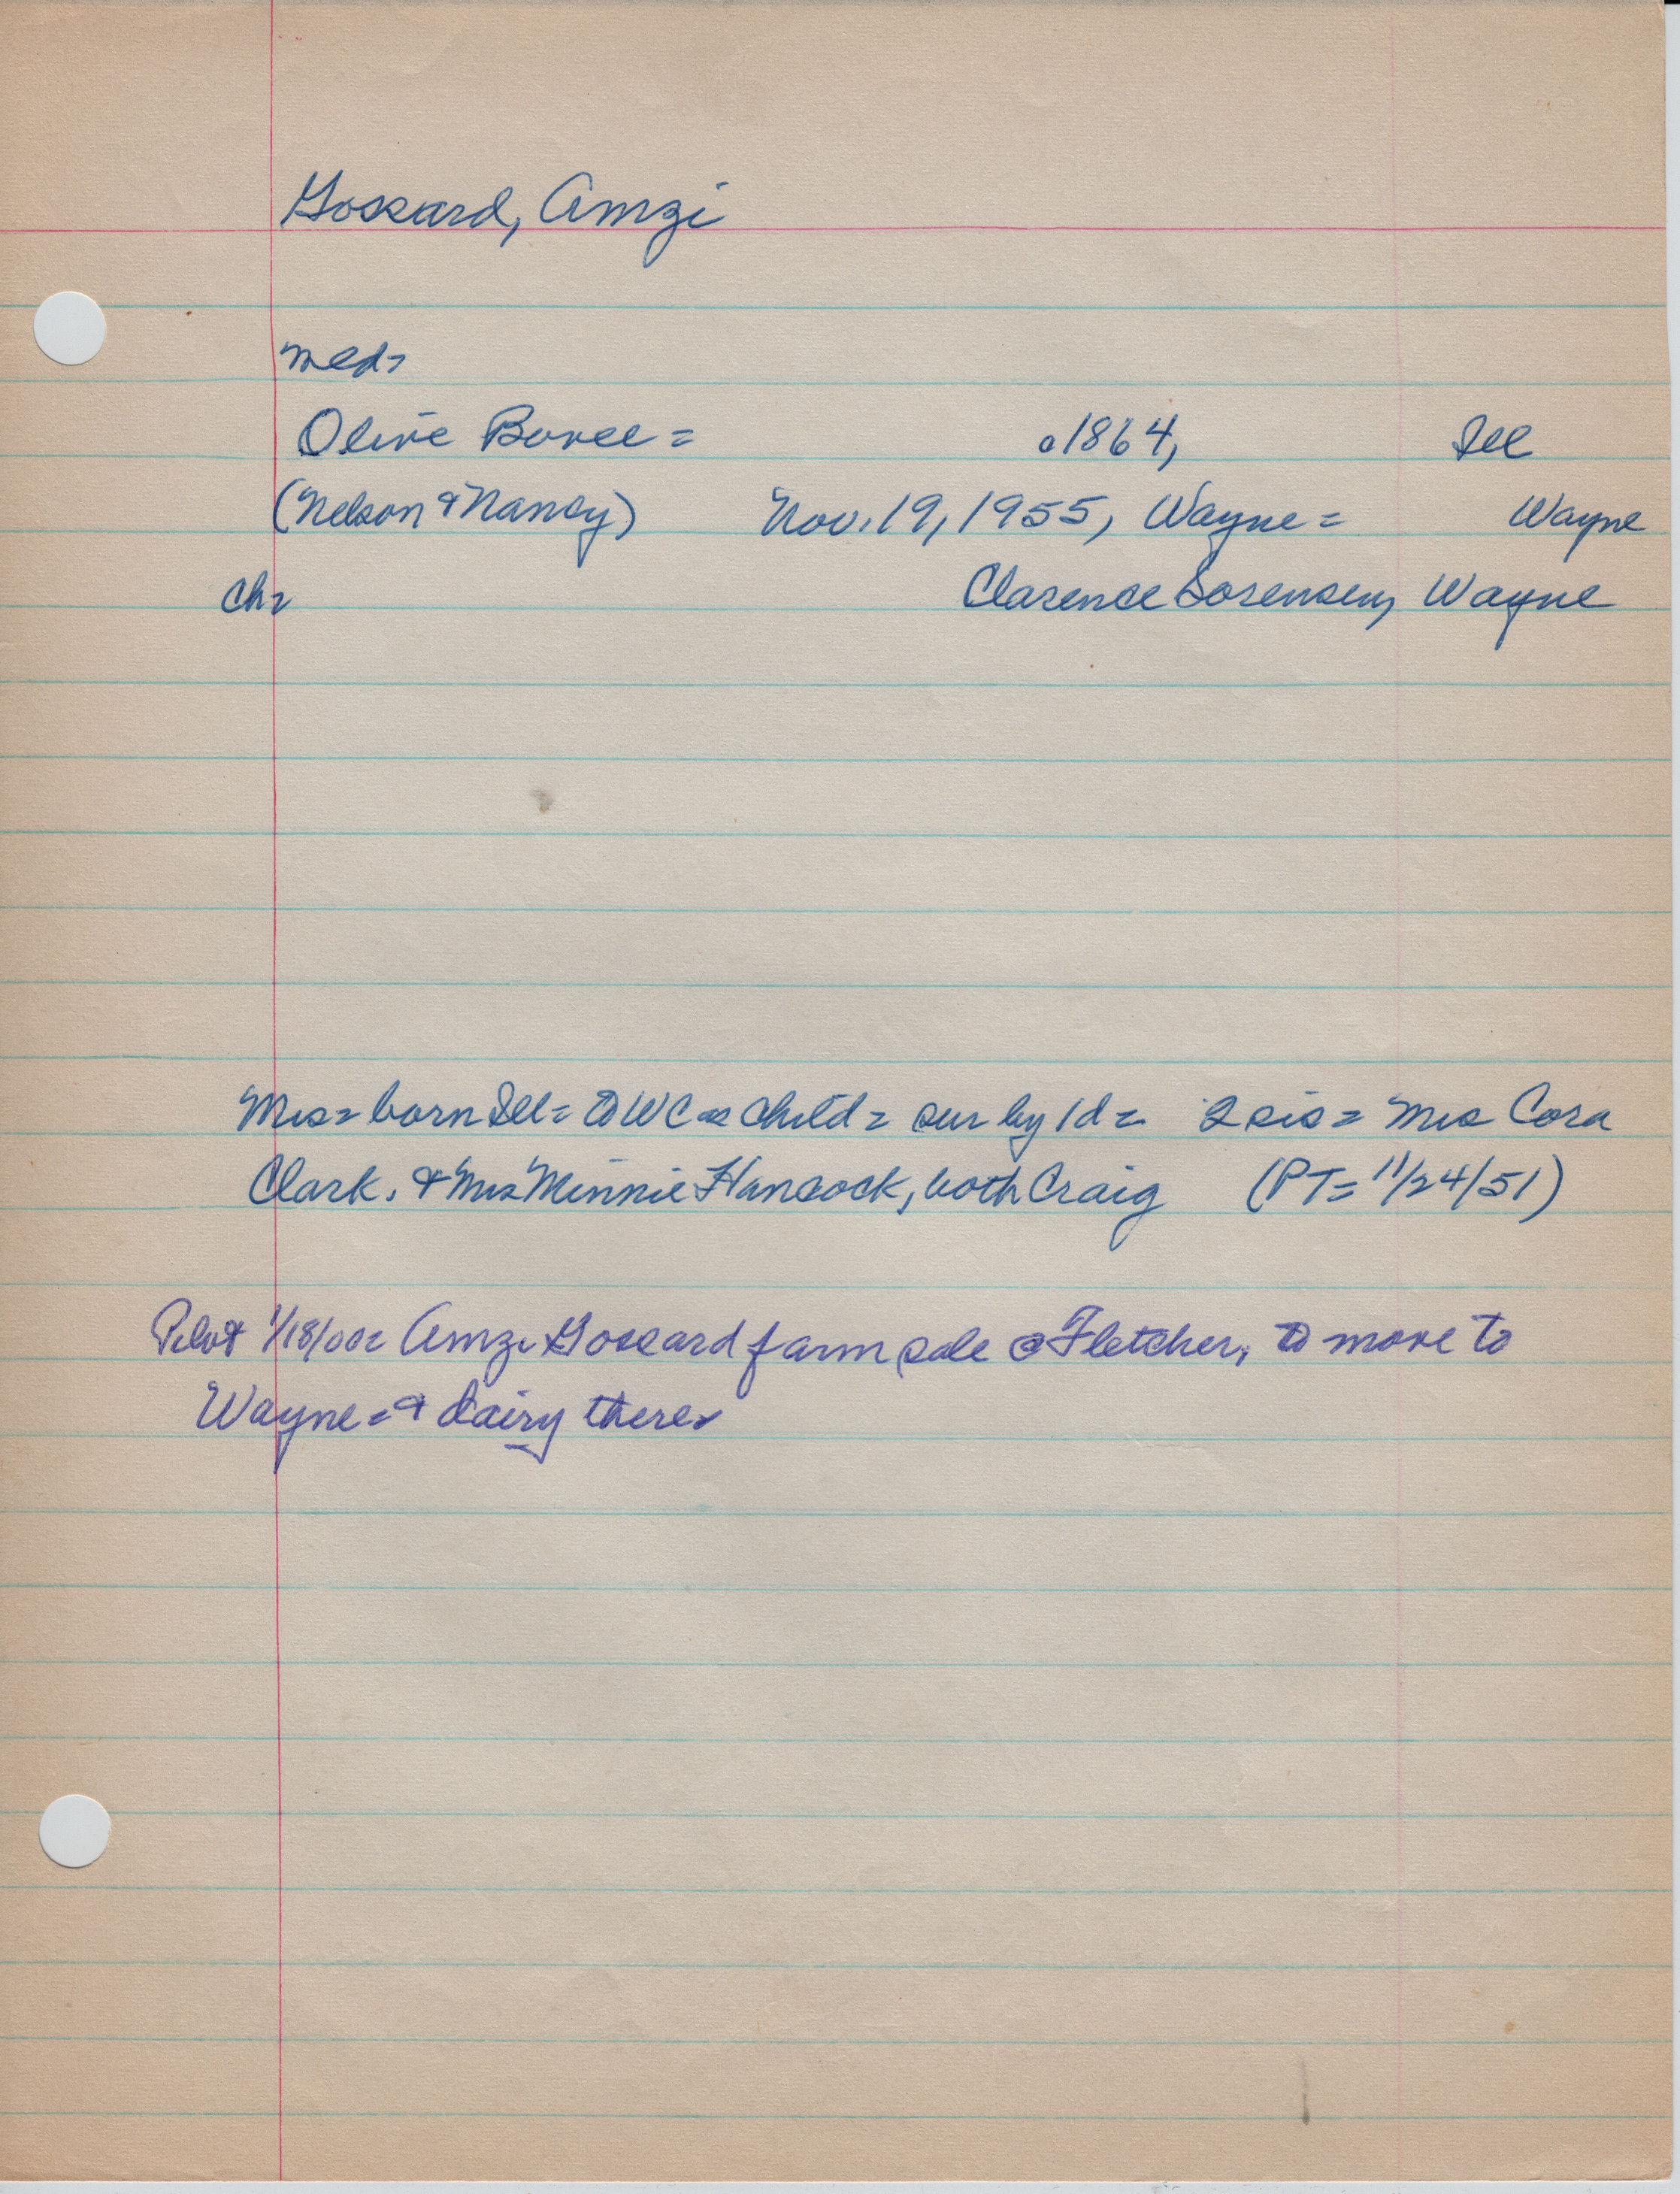 Gossard, Amzi
med=
Olive Bovee = c1864, Ill
(Nelson & Nancy) Nov. 19, 1955, Wayne = Wayne
Ch= Clarence Sorensen, Wayne
Mrs= born Ill= to WC as child= sur by 1d= 2 sis= Mrs Cora
Clark, & Mrs Minnie Hancock, both Craig (PT= 11/24/51)
Pilot 1/18/00= Amzi Gossard farm sale @ Fletcher, to move to
Wayne= & dairy there=